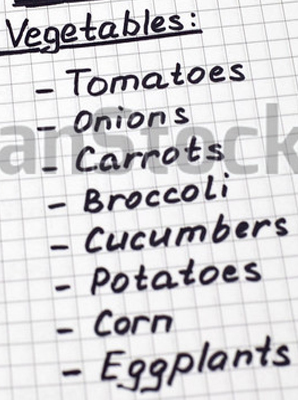 Vegetables:
- Tomatoes
- Onions
- Carrots
- Broccoli
- Cucumbers
- Potatoes
- Corn
- Eggplants